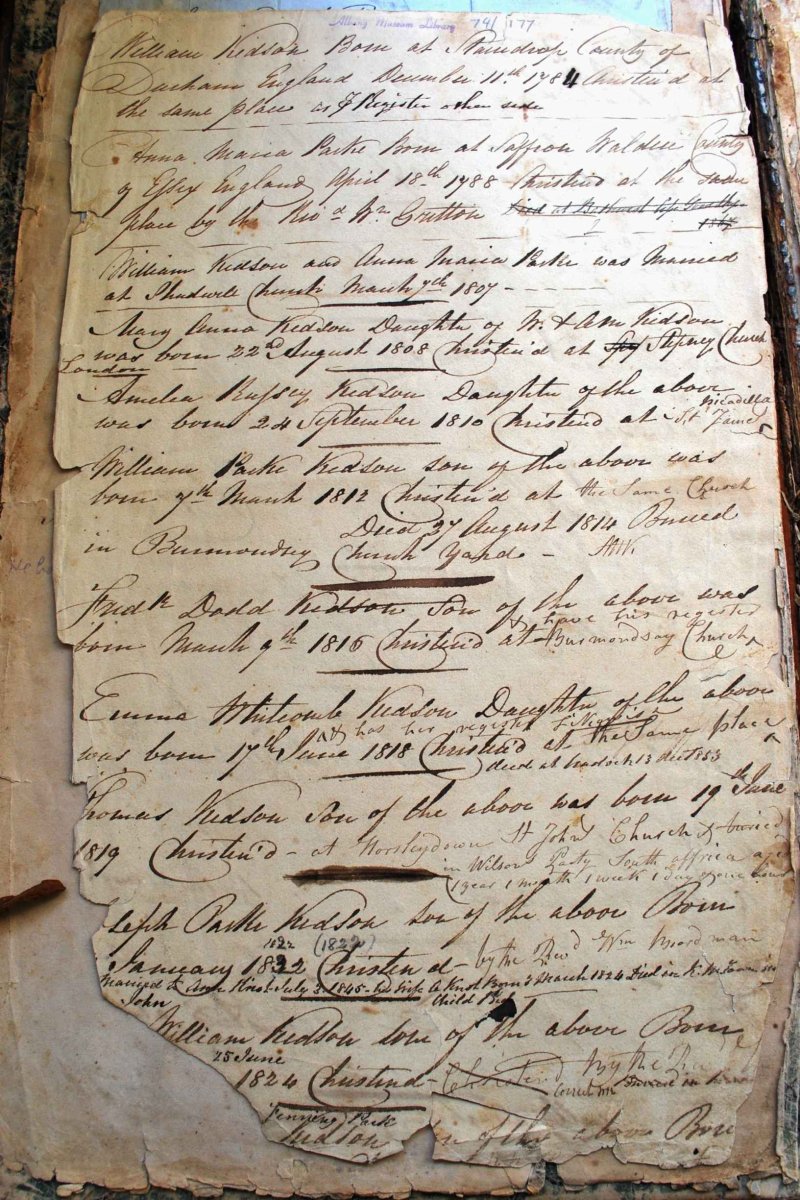 Albany Museum Library 791 177
William Kidson Born at Staindrop County of
Durham England December 11th 1784 Christen'd at
the same place as Register other side
Anna Maria Parke Born at Saffron Walden County
of Essex England April 18th 1788 Christen'd at the same
place by the Revd Wm Gretton Died at Bathurst
William Kidson and Anna Maria Parke was Married
at Shadwell Church March 7th 1807
Mary Anna Kidson Daughter of W. & AM Kidson
was born 22d August 1808 Christen'd at Stepney Church
London
Amelia Kidson Daughter of the above
was born 24 September 1810 Christen'd at St James Picadilla
William Parke Kidson son of the above was
born 7th March 1812 Christen'd at the Same Church
Died 27 August 1814 Buried
in Burmondsey Church Yard AMK
Fredk Dodd Kidson Son of the above was
born March 9th 1816 Christen'd at Burmondsay Church
& have his register
Emma Whitcomb Kidson Daughter of the above
& has her register
was born 17th June 1818 Christen'd at the Same place
died at 13 1853
Thomas Kidson Son of the above was born 19th June
1819 Christen'd - at Horsleydown St Johns Church & buried
in Wilsons Party South Affrica age
1 year 1 month 1 week 1 day & one hour
seph Parke Kidson son of the above Born
1822 (1822)
January 1822 Christen'd - by the Revd Wm Boardman
Married to Ann Knot July 1845 - his wife A Knot Born 3 March 1824 Died in K. Wm Town in
Child Bed
John
William Kidson son of the above Born
25 June
1824 Christend - Christend by the
Correct Buried in
Fenning Park
Kidson son of the above Born